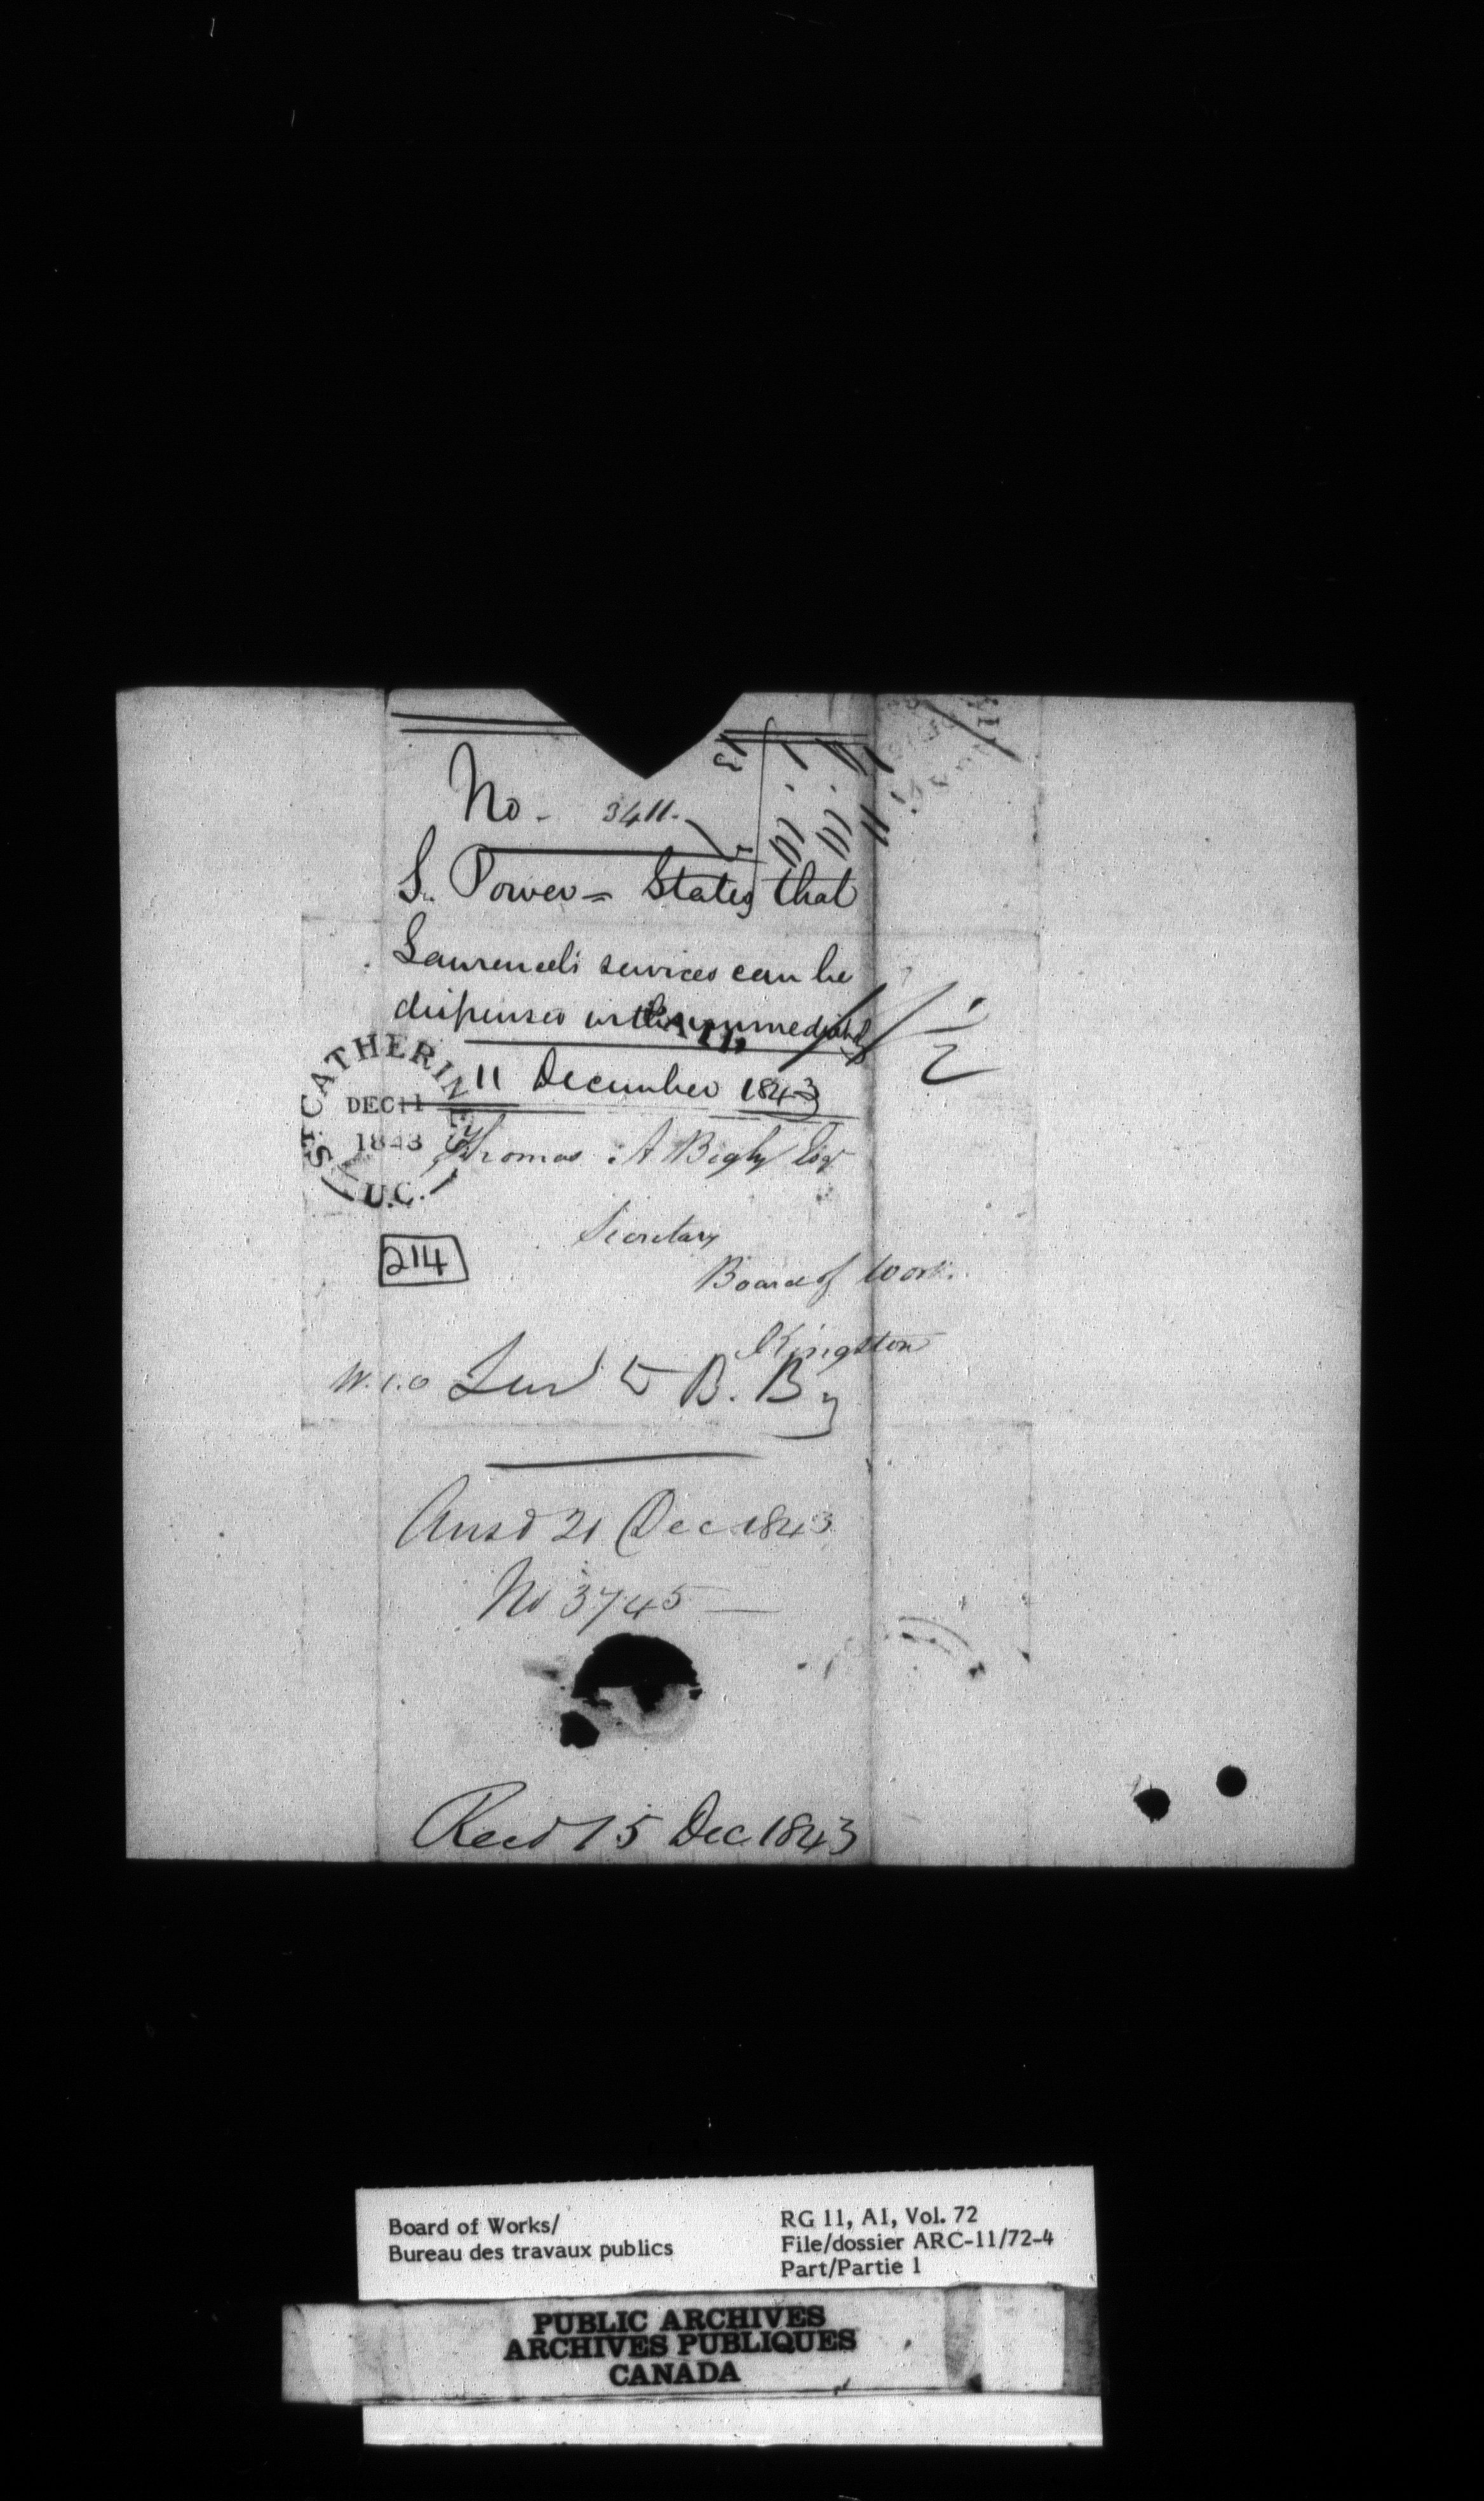 No. 3411.
S. Power = States that
Lawrence's services can be
dispensed with immediately
PAID
11 December 1843
ST. CATHERINES
DEC 11
1843
U.C.
Thomas A Begly Esqr
Secretary
Board of Works
Kingston
214
W.C.O
B. By
1/2
Ansd 21 Dec 1843
No 3745
Recd 15 Dec 1843
Board of Works/
Bureau des travaux publics
RG 11, A1, Vol. 72
File/dossier ARC-11/72-4
Part/Partie 1
PUBLIC ARCHIVES
ARCHIVES PUBLIQUES
CANADA